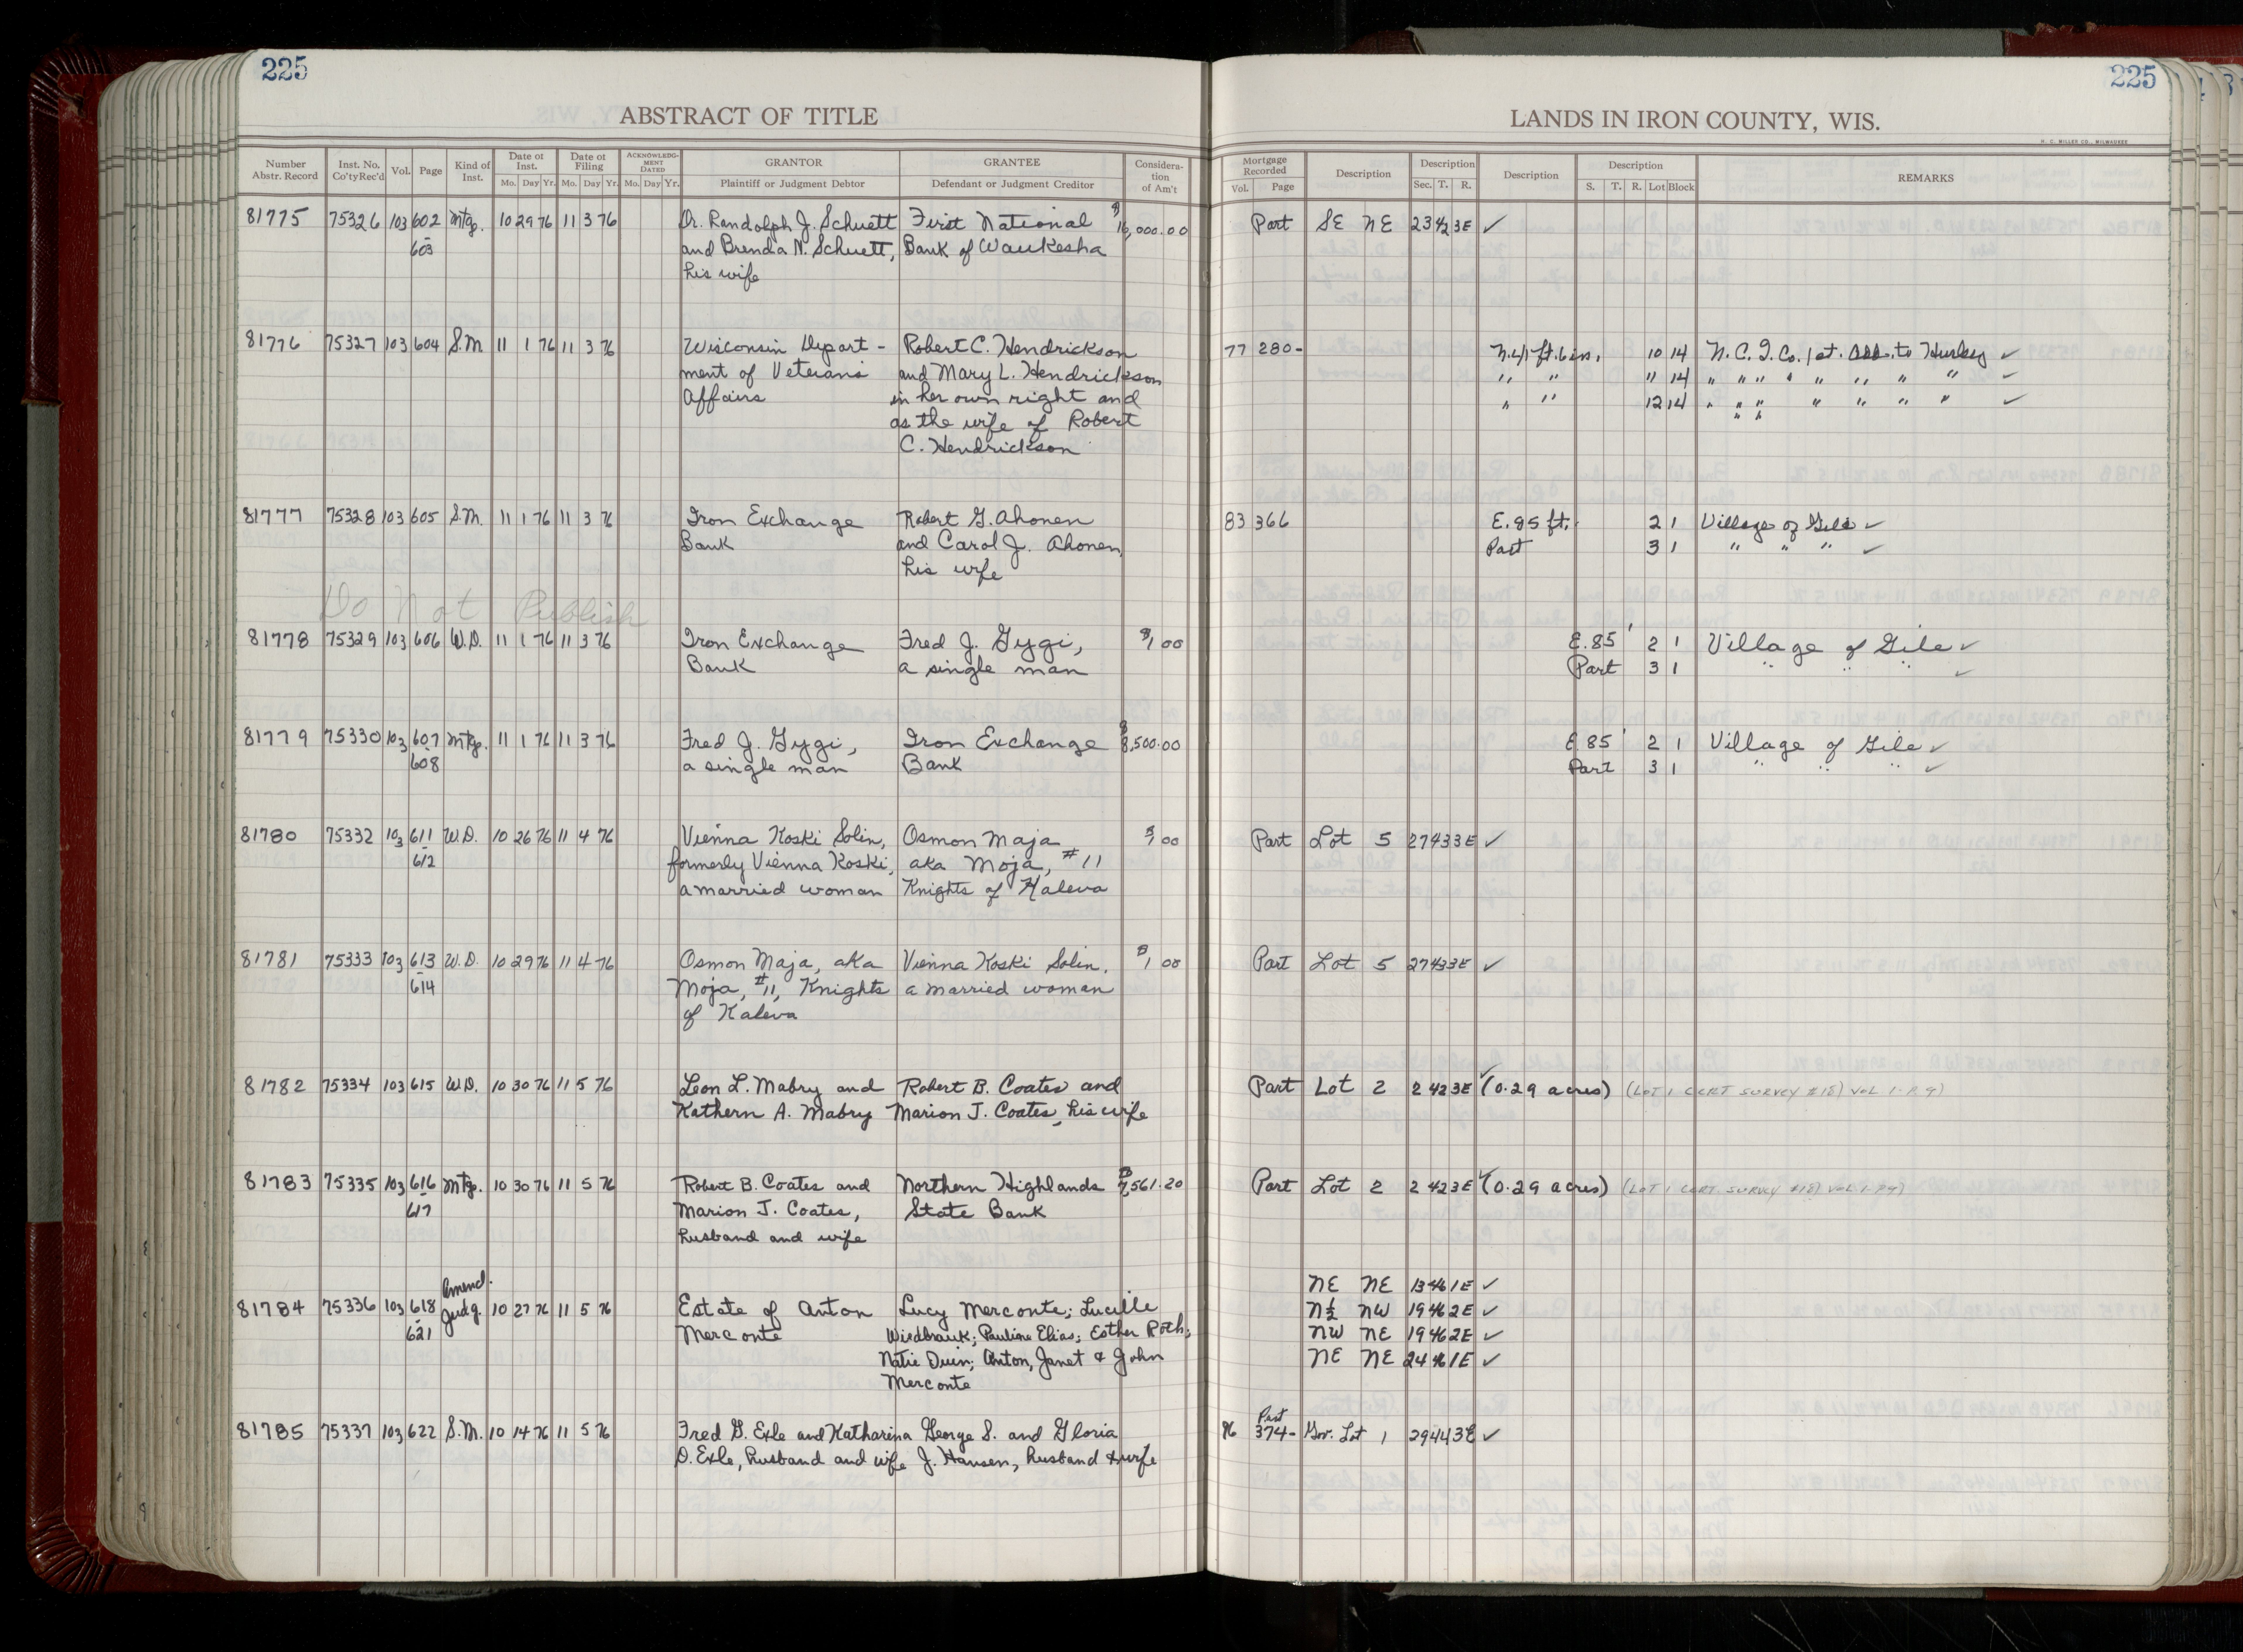 225
225
ABSTRACT OF TITLE
LANDS IN IRON COUNTY, WIS.
H. C. MILLER CO., MILWAUKEE
Number Abstr. Record | Inst. No. Co'ty Rec'd | Vol. | Page | Kind of Inst. | Date of Inst. Mo. Day Yr. | Date of Filing Mo. Day Yr. | ACKNOWLEDGMENT DATED Mo. Day Yr. | GRANTOR Plaintiff or Judgment Debtor | GRANTEE Defendant or Judgment Creditor | Consideration of Am't | Mortgage Recorded Vol. Page | Description | Description Sec. T. R. | Description | Description S. T. R. Lot Block | REMARKS
81775 75326 103 602 Mtg. 10 29 76 11 3 76 Dr. Randolph J. Schuett First National $16,000.00 Part SE NE 23 42 3E ✓
603 and Brenda N. Schuett, Bank of Waukesha
his wife
81776 75327 103 604 S.M. 11 1 76 11 3 76 Wisconsin Depart- Robert C. Hendrickson 77 280- N. 41 ft. 6 in. 10 14 N. C. I. Co. 1st. Add. to Hurley ✓
ment of Veterans and Mary L. Hendrickson " " 11 14 " " " " " " " " ✓
Affairs in her own right and " " 12 14 " " " " " " " ✓
as the wife of Robert
C. Hendrickson
81777 75328 103 605 S.M. 11 1 76 11 3 76 Iron Exchange Robert G. Ahonen 83 366 E. 85 ft. 2 1 Village of Gile ✓
Bank and Carol J. Ahonen, Part 3 1 " " " ✓
his wife
Do Not Publish
81778 75329 103 606 W.D. 11 1 76 11 3 76 Iron Exchange Fred J. Gygi, $1 00 E. 85' 2 1 Village of Gile ✓
Bank a single man Part 3 1 " " " ✓
81779 75330 103 607 Mtg. 11 1 76 11 3 76 Fred J. Gygi, Iron Exchange $8,500.00 E. 85' 2 1 Village of Gile ✓
608 a single man Bank Part 3 1 " " " ✓
81780 75332 103 611 W.D. 10 26 76 11 4 76 Vienna Koski Solin, Osmon Maja $1 00 Part Lot 5 27 43 3E ✓
612 formerly Vienna Koski, aka Moja, #11
a married woman Knights of Kaleva
81781 75333 103 613 W.D. 10 29 76 11 4 76 Osmon Maja, aka Vienna Koski Solin, $1 00 Part Lot 5 27 43 3E ✓
614 Moja, #11, Knights a married woman
of Kaleva
81782 75334 103 615 W.D. 10 30 76 11 5 76 Leon L. Mabry and Robert B. Coates and Part Lot 2 2 42 3E ✓ (0.29 acres) (LOT 1 CERT SURVEY #18) VOL 1-P. 9)
Kathern A. Mabry Marion J. Coates, his wife
81783 75335 103 616 Mtg. 10 30 76 11 5 76 Robert B. Coates and Northern Highlands $9,561.20 Part Lot 2 2 42 3E ✓ (0.29 acres) (LOT 1 CERT. SURVEY #18) VOL. 1-P9)
617 Marion J. Coates, State Bank
husband and wife
Amend. NE NE 13 46 1E ✓
81784 75336 103 618 Judg. 10 27 76 11 5 76 Estate of Anton Lucy Merconte; Lucille N½ NW 19 46 2E ✓
621 Merconte Wiedbrauk; Pauline Elias; Esther Roth; NW NE 19 46 2E ✓
Natie Duin; Anton, Janet & John NE NE 24 46 1E ✓
Merconte
Part
81785 75337 103 622 S.M. 10 14 76 11 5 76 Fred G. Exle and Katharina George S. and Gloria 96 374- Gov. Lot 1 29 44 3E ✓
D. Exle, husband and wife J. Hansen, husband & wife